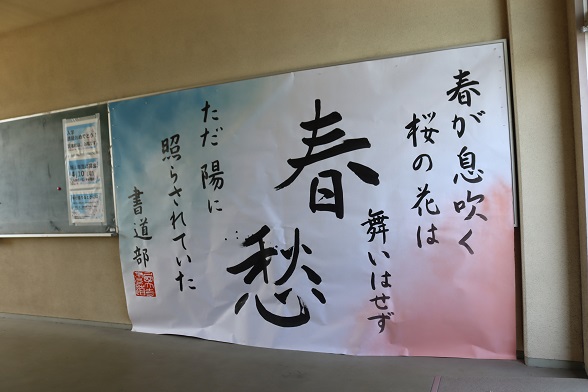 春が息吹く
桜の花は
舞いはせず
春愁
ただ陽に
照らされていた
書道部